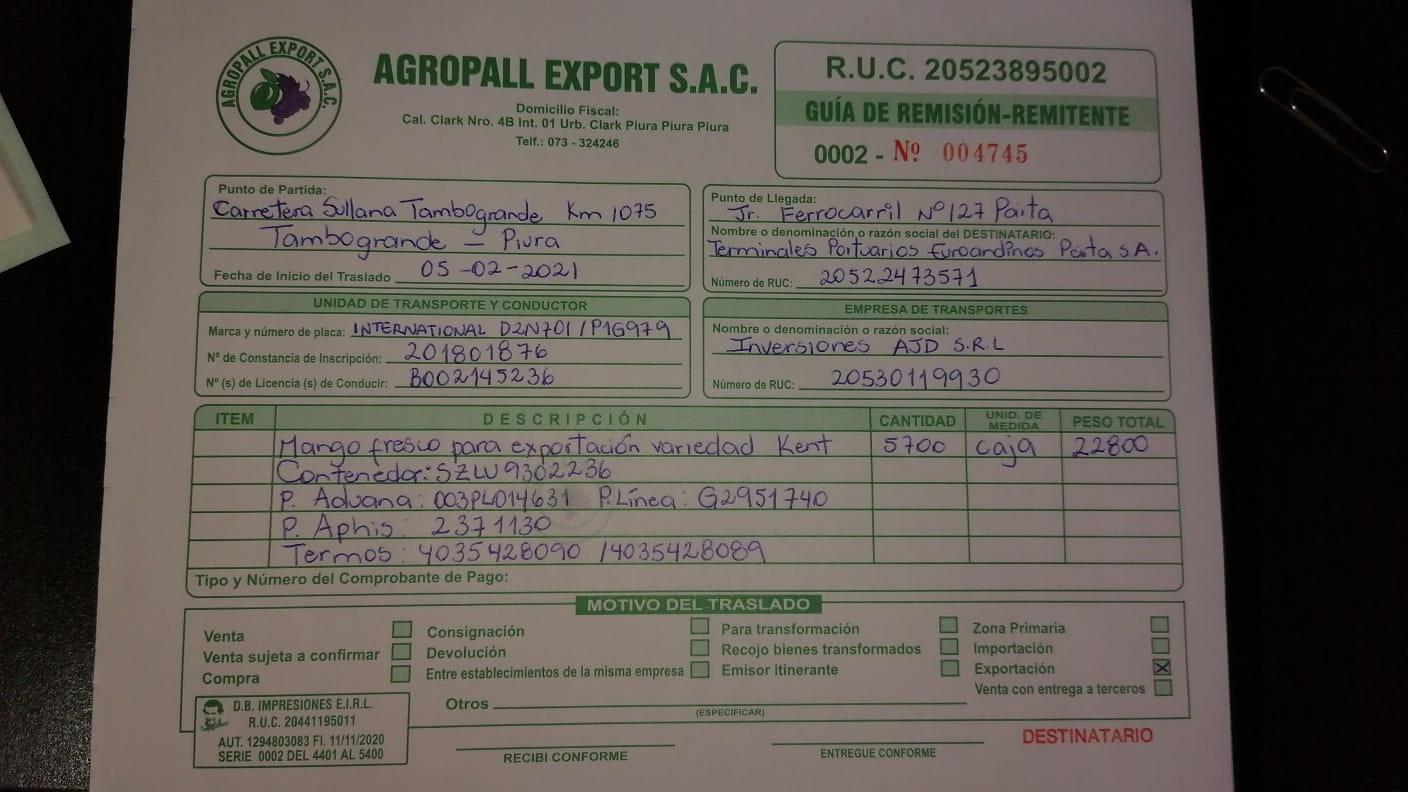 AGROPALL EXPORT S.A.C.
AGROPALL EXPORT S.A.C.
Domicilio Fiscal:
Cal. Clark Nro. 4B Int. 01 Urb. Clark Piura Piura Piura
Telf.: 073 - 324246
R.U.C. 20523895002
GUÍA DE REMISIÓN-REMITENTE
0002 - Nº 004745
Punto de Partida:
Carretera Sullana Tambogrande Km 1075
Tambogrande - Piura
Fecha de Inicio del Traslado 05-02-2021
Punto de Llegada:
Jr. Ferrocarril Nº 127 Paita
Nombre o denominación o razón social del DESTINATARIO:
Terminales Portuarios Euroandinos Paita SA.
Número de RUC: 20522473571
UNIDAD DE TRANSPORTE Y CONDUCTOR
Marca y número de placa: INTERNATIONAL D2N701/P1G979
Nº de Constancia de Inscripción: 201801876
Nº (s) de Licencia (s) de Conducir: B002145236
EMPRESA DE TRANSPORTES
Nombre o denominación o razón social:
Inversiones AJD S.R.L
Número de RUC: 20530119930
ITEM DESCRIPCIÓN CANTIDAD UNID. DE MEDIDA PESO TOTAL
Mango fresco para exportación variedad Kent 5700 caja 22800
Contenedor: SZLU9302236
P. Aduana: 003PL014631 P.Línea: G2951740
P. Aphis: 2371130
Termos: 4035428090 /4035428089
Tipo y Número del Comprobante de Pago:
MOTIVO DEL TRASLADO
Venta
Venta sujeta a confirmar
Compra
Consignación
Devolución
Entre establecimientos de la misma empresa
Para transformación
Recojo bienes transformados
Emisor itinerante
Zona Primaria
Importación
Exportación X
Venta con entrega a terceros
Otros
(ESPECIFICAR)
D.B. IMPRESIONES E.I.R.L.
R.U.C. 20441195011
AUT. 1294803083 FI. 11/11/2020
SERIE 0002 DEL 4401 AL 5400
RECIBI CONFORME
ENTREGUE CONFORME
DESTINATARIO